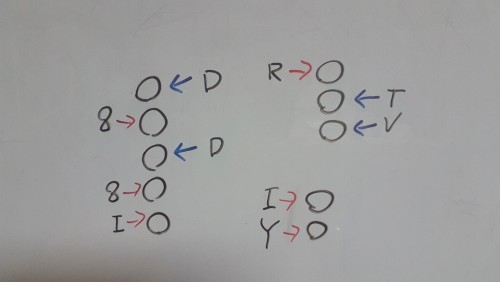 D
8
D
8
I
R
T
V
I
Y